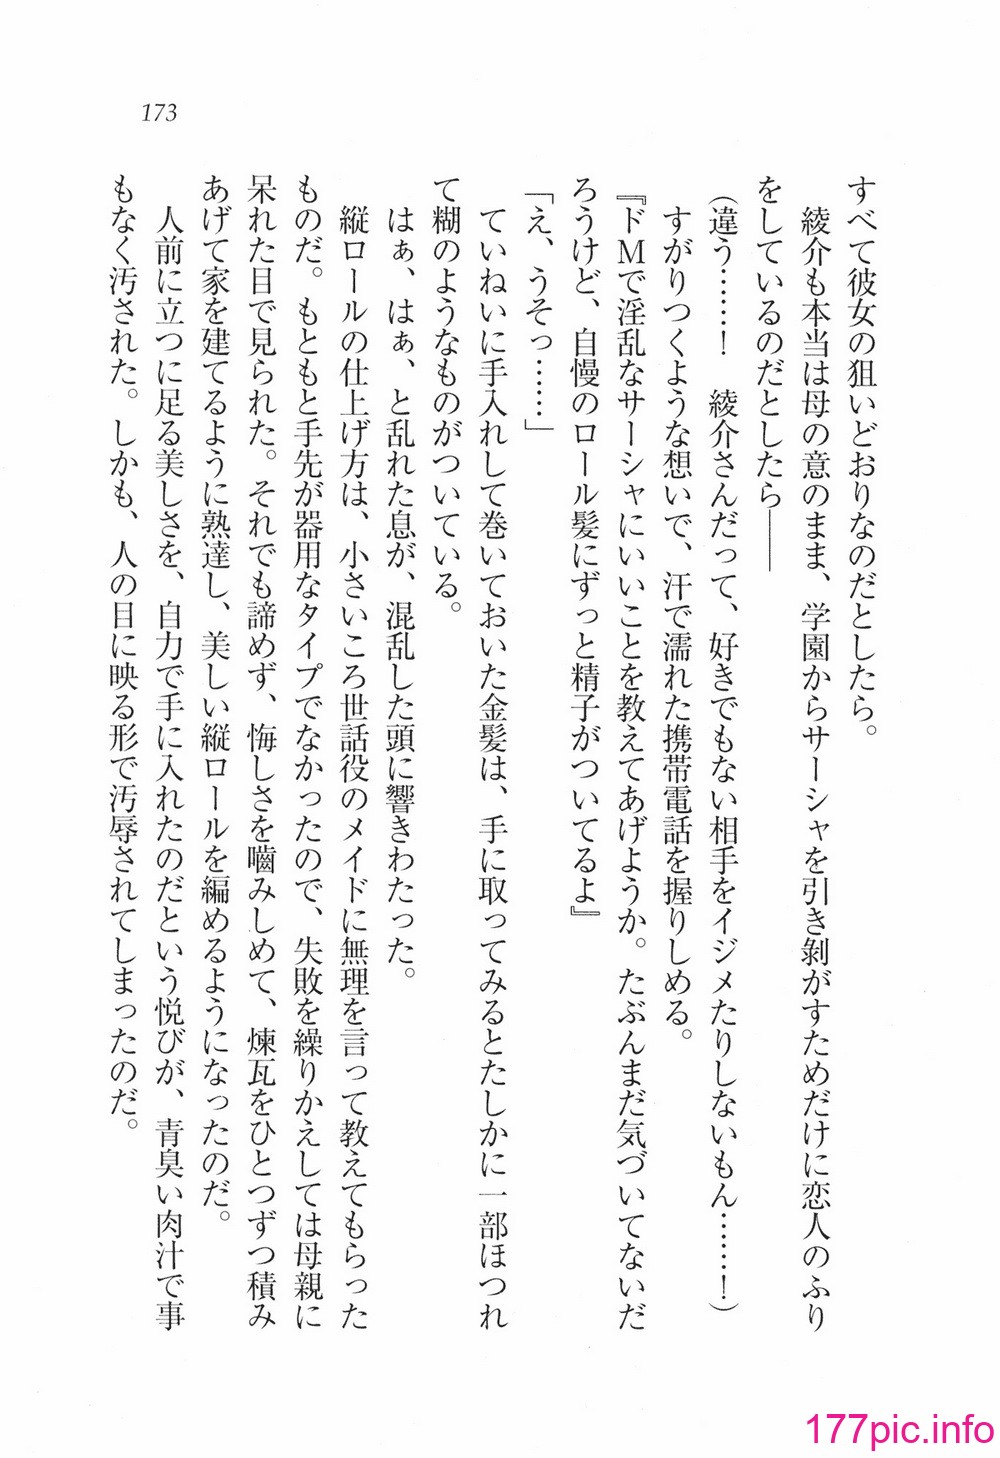 173
すべて彼女の狙いどおりなのだとしたら。
綾介も本当は母の意のまま、学園からサーシャを引き剝がすためだけに恋人のふり
をしているのだとしたら――
（違う……！　綾介さんだって、好きでもない相手をイジメたりしないもん……！）
すがりつくような想いで、汗で濡れた携帯電話を握りしめる。
『ドＭで淫乱なサーシャにいいことを教えてあげようか。たぶんまだ気づいてないだ
ろうけど、自慢のロール髪にずっと精子がついてるよ』
「え、うそっ……」
ていねいに手入れして巻いておいた金髪は、手に取ってみるとたしかに一部ほつれ
て糊のようなものがついている。
はぁ、はぁ、と乱れた息が、混乱した頭に響きわたった。
縦ロールの仕上げ方は、小さいころ世話役のメイドに無理を言って教えてもらった
ものだ。もともと手先が器用なタイプでなかったので、失敗を繰りかえしては母親に
呆れた目で見られた。それでも諦めず、悔しさを嚙みしめて、煉瓦をひとつずつ積み
あげて家を建てるように熟達し、美しい縦ロールを編めるようになったのだ。
人前に立つに足る美しさを、自力で手に入れたのだという悦びが、青臭い肉汁で事
もなく汚された。しかも、人の目に映る形で汚辱されてしまったのだ。
177pic.info